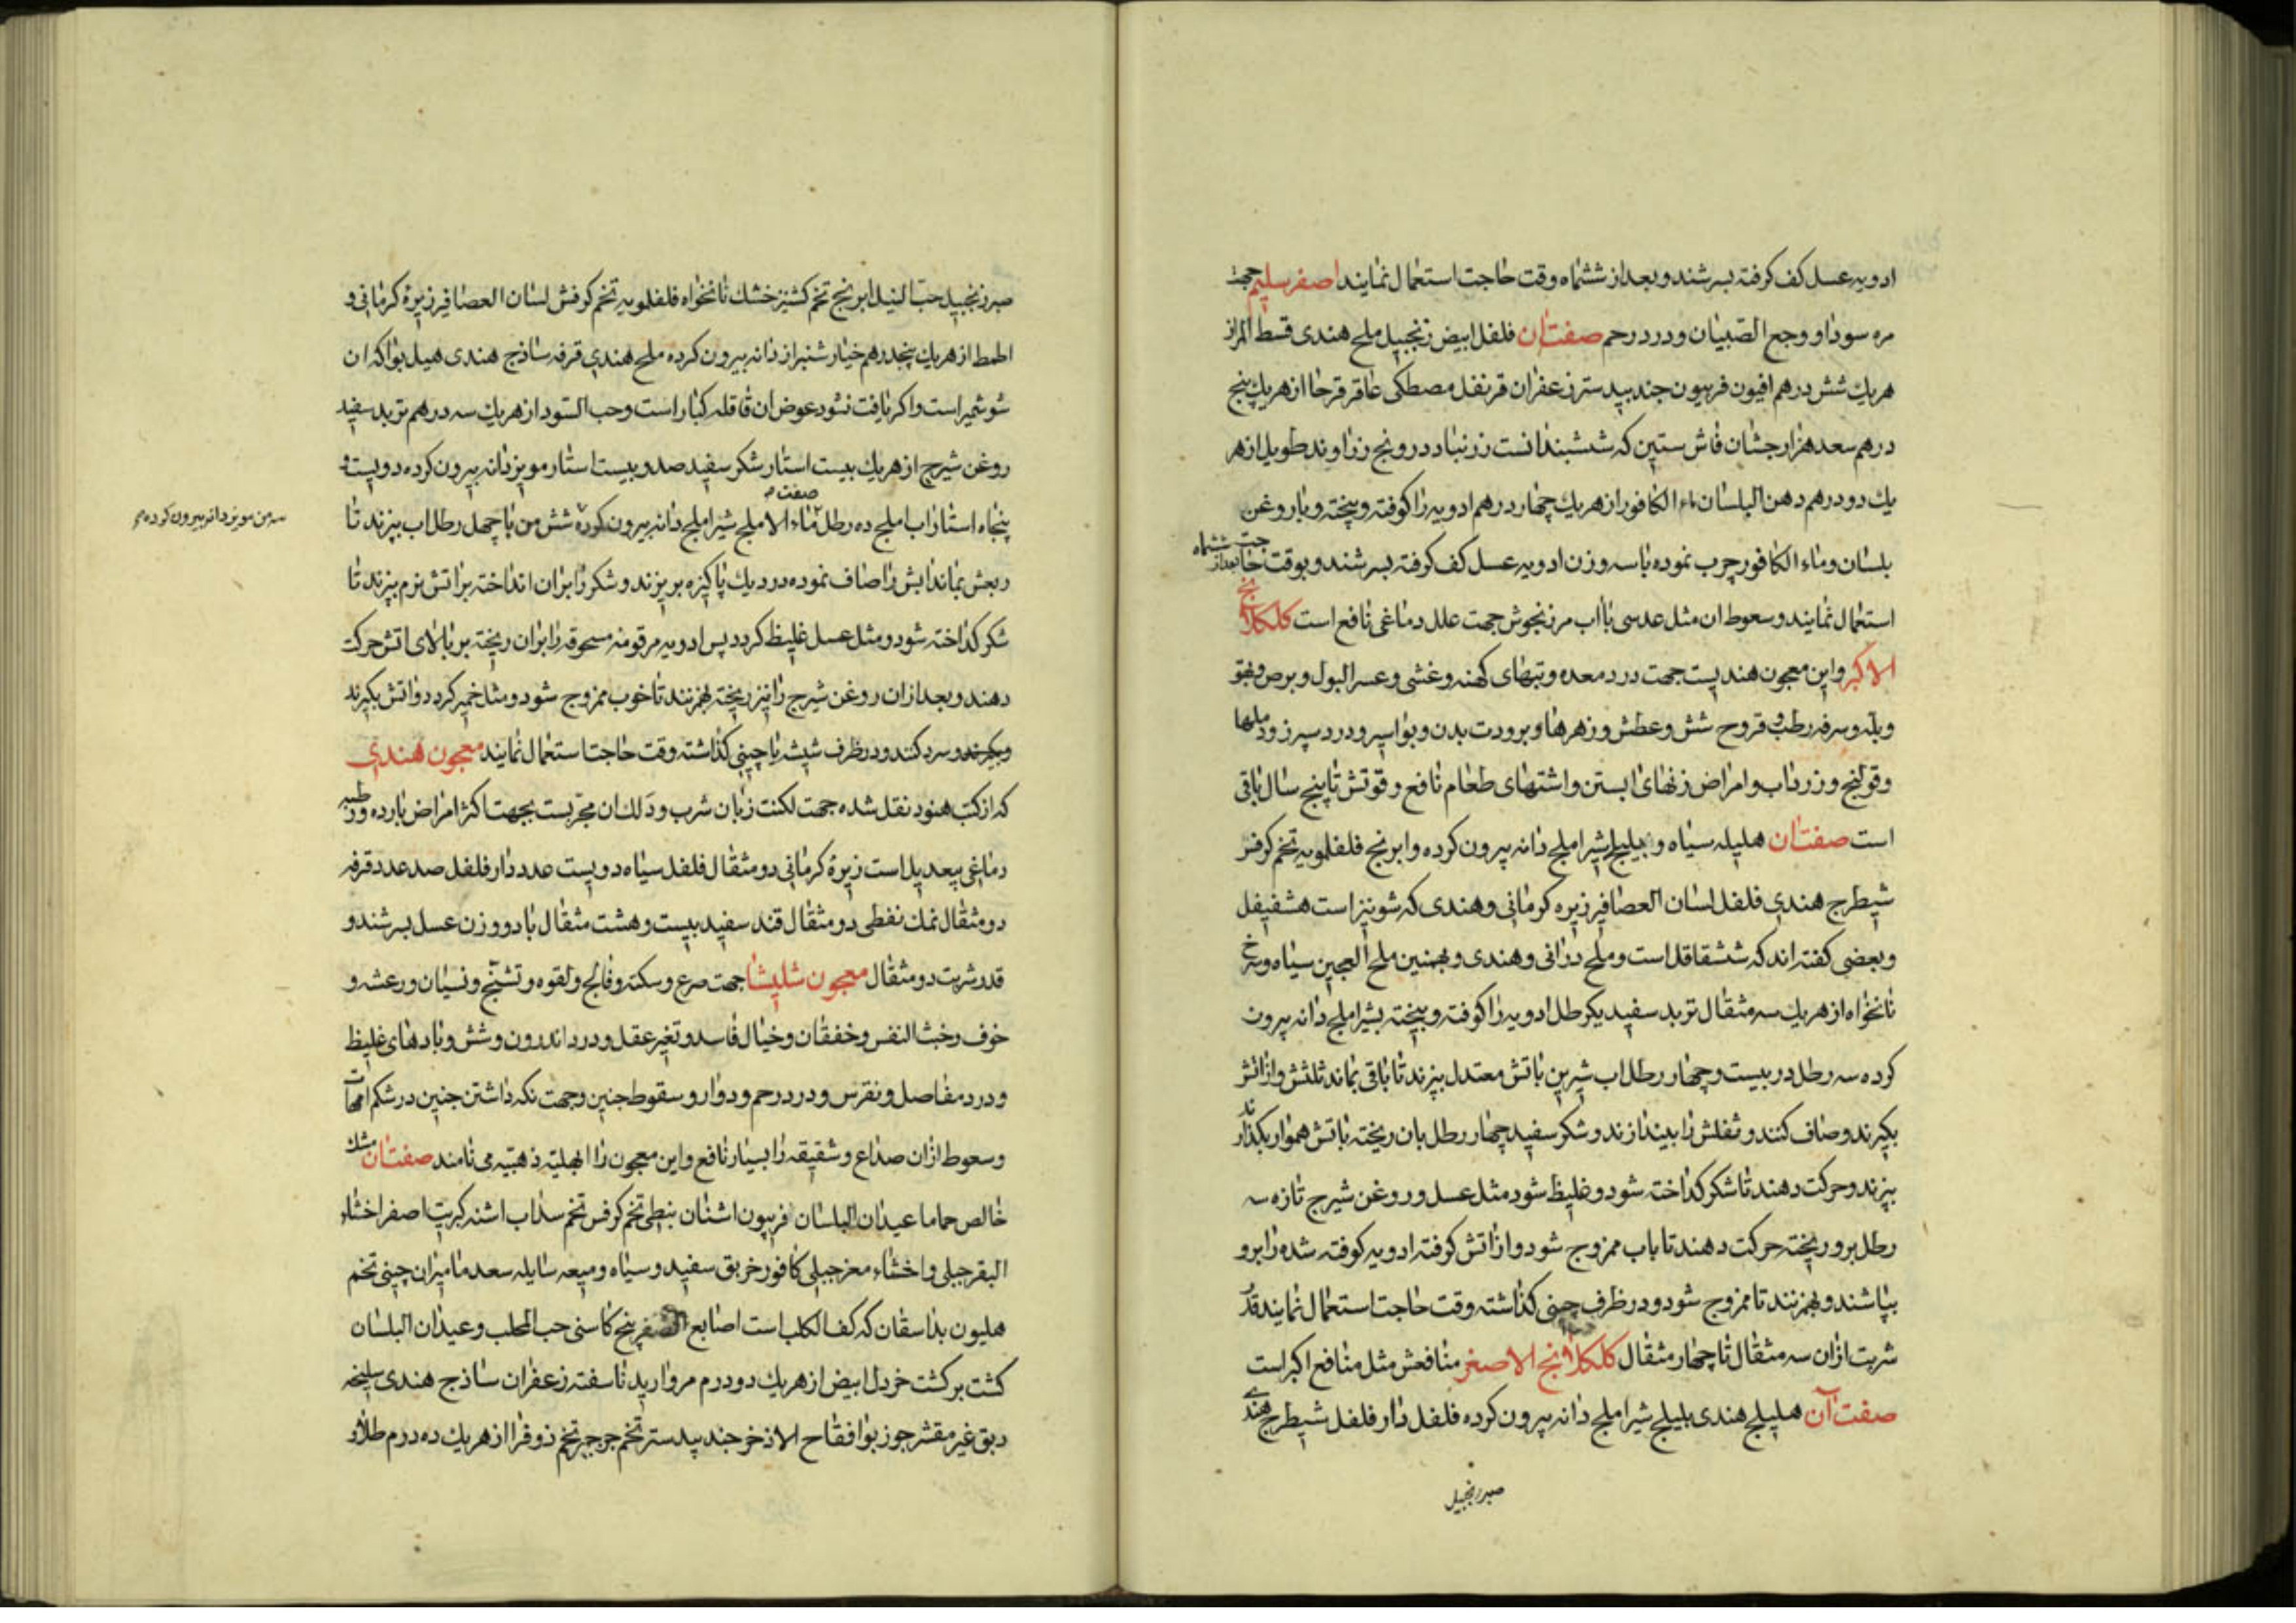 ادویه عسل کف کرفته بسرشند و بعد از ششماه وقت حاجت استعمال نمایند اصفر سلیم جهت
مره سودا و وجع الصبیان و درد رحم صفت ان فلفل ابیض زنجبیل ملح هندی قسط المر از
هریك شش درهم افیون فربیون جند بیدستر زعفران قرنفل مصطکی عاقرقرحا از هریك پنج
درهم سعد هزارجشان فاش ستین که ششبندانست زرنباد درونج زراوند طویل از هر
یك دو درهم دهن البلسان ماء الکافور از هریك چهار درهم ادویه را کوفته و بیخته و با روغن
بلسان و ماء الکافور چرب نموده با سه وزن ادویه عسل کف کرفته بسرشند و بوقت حاجت بعد از ششماه
استعمال نمایند و سعوط ان مثل عدسی با اب مرزنجوش جهت علل دماغی نافع است کلکلانج
الاکبر و این معجون هندیست جهت درد معده و تبهای کهنه و غشی و عسر البول و برص و بهق
و بله و سرفه رطب و قروح شش و عطش و زهرها و برودت بدن و بواسیر و درد سپرز و دملها
و قولنج و زرداب و امراض زنهای ابستن و اشتهای طعام نافع و قوتش تا پنج سال باقی
است صفت ان هلیله سیاه و بلیلج شیر املج دانه بیرون کرده و ابرنج فلفلمویه تخم کرفس
شیطرج هندی فلفل لسان العصافیر زیره کرمانی و هندی که شونیز است هشفیفل
و بعضی کفته اند که ششقاقل است و ملح درانی و هندی و بهمنین ملح العجین سیاه و سرخ
نانخواه از هریك سه مثقال تربد سفید یکرطل ادویه را کوفته و بیخته بشیر املج دانه بیرون
کرده سه رطل در بیست و چهار رطل اب شیرین باتش معتدل بپزند تا باقی بماند ثلثش و از اتش
بکیرند و صاف کنند و ثفلش را بیندازند و شکر سفید چهار رطل بان ریخته باتش هموار بکذارند
بپزند و حرکت دهند تا شکر کداخته شود و غلیظ شود مثل عسل و روغن شیرج تازه سه
رطل برو ریخته حرکت دهند تا باب ممزوج شود و از اتش کرفته ادویه کوفته شده را برو
بپاشند و بهم زنند تا ممزوج شود و در ظرف چینی کذاشته وقت حاجت استعمال نمایند قدر
شربت ازان سه مثقال تا چهار مثقال کلکلانج الاصغر منافعش مثل منافع اکبر است
صفت آن هلیلج هندی بلیلج شیر املج دانه بیرون کرده فلفل دار فلفل شیطرج هندی
صبر زنجبیل
صبر زنجبیل حب النیل ابرنج تخم کشنیز خشك نانخواه فلفلمویه تخم کرفش لسان العصافیر زیرۀ کرمانی و
اطمط از هریك پنجدرهم خیارشنبر از دانه بیرون کرده ملح هندی قرفه ساذج هندی هیل بوا که ان
شوشمیر است و اکر یافت نشود عوض ان قاقله کبار است و حب السود از هریك سه درهم تربد سفید
روغن شیرج از هریك بیست استار شکر سفید صد و بیست استار مویز دانه بیرون کرده دویست و
پنجاه استار اب املج ده رطل صفت ماء الاملج شیر املج دانه بیرون کرده شش من با چهل رطل اب بپزند تا
سه من مویز دانه بیرون کرده
ربعش بماند ابش را صاف نموده در دیك پاکیزه بریزند و شکر را بران انداخته بر اتش نرم بپزند تا
شکر کداخته شود و مثل عسل غلیظ کردد پس ادویه مرقومه مسحوقه را بران ریخته بر بالای اتش حرکت
دهند و بعد ازان روغن شیرج را نیز ریخته بهم زنند تا خوب ممزوج شود و مثل خمیر کردد و از اتش بکیرند
و بکیرند و سرد کنند و در ظرف شیشه یا چینی کذاشته وقت حاجت استعمال نمایند معجون هندی
که از کتب هنود نقل شده جهت لکنت زبان شرب و دلك ان مجربست بجهت اکثر امراض بارده و رطبه
دماغی بیعدیل است زیرۀ کرمانی دو مثقال فلفل سیاه دویست عدد دار فلفل صد عدد قرفه
دو مثقال نمك نفطی دو مثقال قند سفید بیست و هشت مثقال با دو وزن عسل بسرشند و
قدر شربت دو مثقال معجون شلیشا جهت صرع و سکته و فالج و لقوه و تشنج و نسیان و رعشه و
خوف و خبث النفس و خفقان و خیال فاسد و تغیر عقل و درد اندرون و شش و بادهای غلیظ
و درد مفاصل و نقرس و درد رحم و دوار و سقوط جنین و جهت نکه داشتن جنین در شکم امهات
و سعوط ازان صداع و شقیقه را بسیار نافع و این معجون را ابهلیه ذهبیه می نامند صفت ان مشك
خالص حماما عیدان البلسان فربیون اشنان بنطی تخم کرفس تخم سداب اشنه کبریت اصفر اخثاء
البقر جبلی و اخثاء معز جبلی کافور خربق سفید و سیاه و میعه سایله سعد مامیران چینی تخم
هلیون بداسقان که کف الکلب است اصابع الصفر بیخ کاسنی حب المحلب و عیدان البلسان
کشت بر کشت خردل ابیض از هریك دو درم مروارید ناسفته زعفران ساذج هندی سلیخه
دبق غیر مقشر جوز بوا فقاح الاذخر جند بیدستر تخم جرجیر تخم ذوفرا از هریك ده درم طلاو